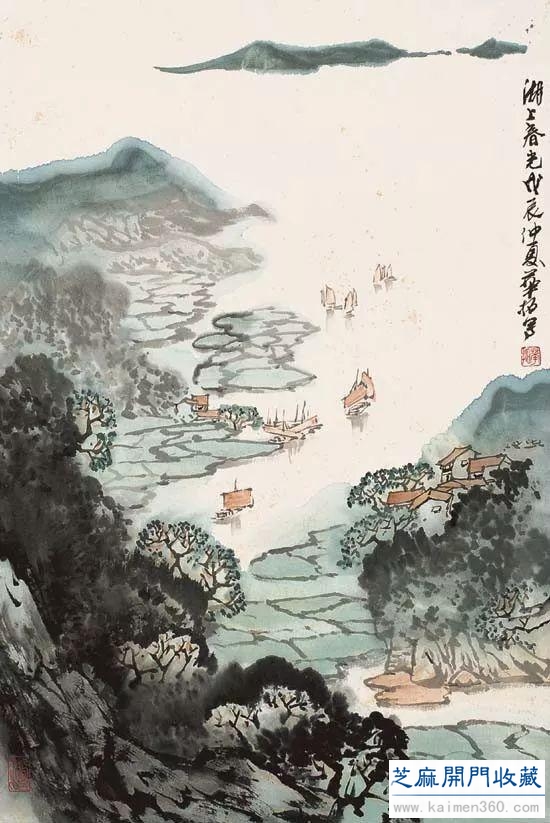 湖上春光戊辰仲夏華拓写
芝麻開門收藏
www.kaimen360.com